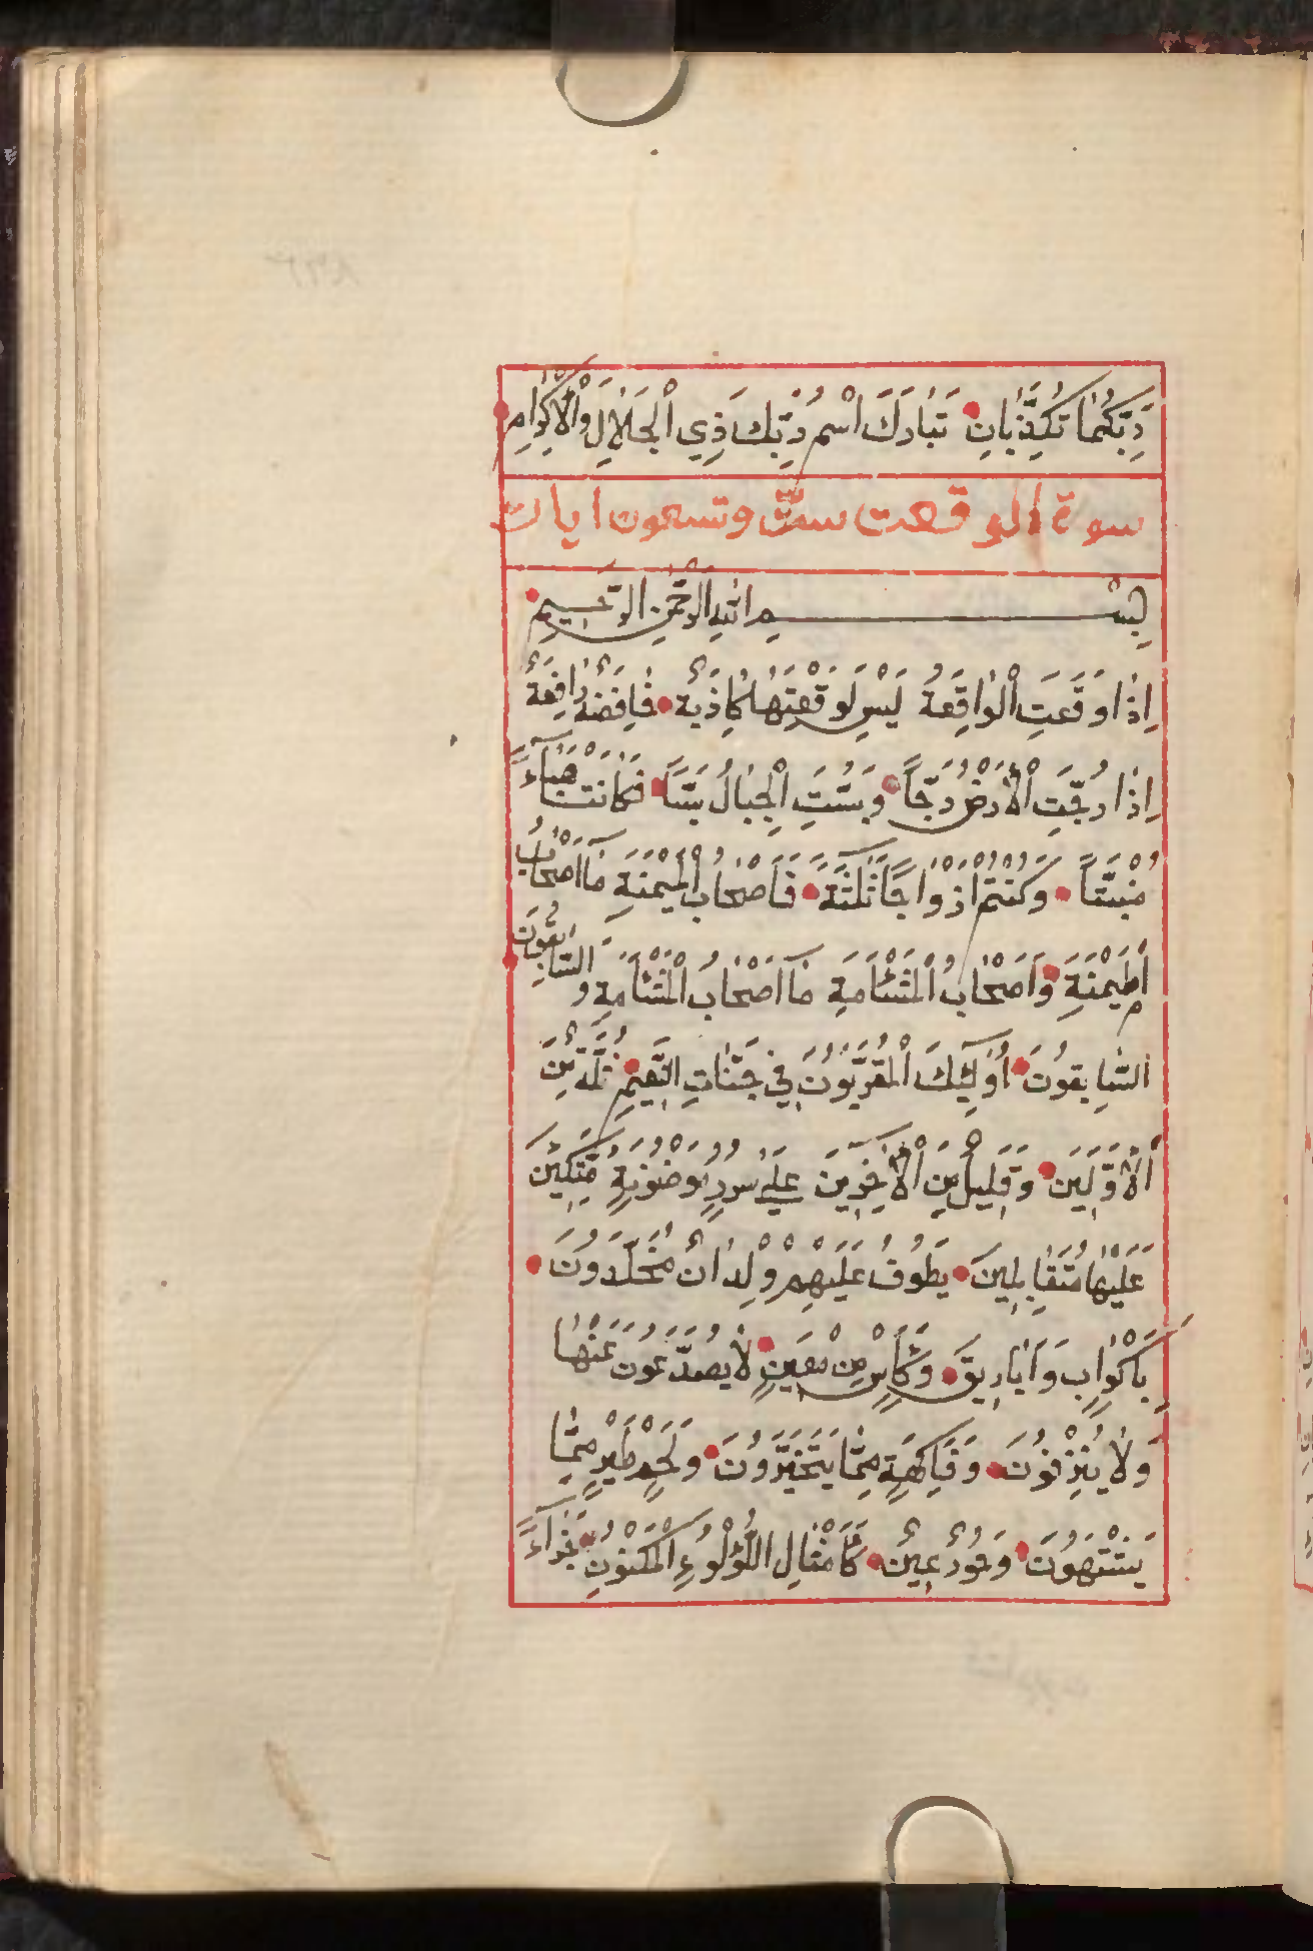 رَبِّكُمَا تُكَذِّبَانِ تَبَارَكَ اسْمُ رَبِّكَ ذِي الْجَلَالِ وَالْإِكْرَامِ
سوة الوقعت ستّ وتسعون ايات
بِسْمِ اللهِ الرَّحْمٰنِ الرَّحِيمِ
اِذَا وَقَعَتِ الْوَاقِعَةُ لَيْسَ لِوَقْعَتِهَا كَاذِبَةٌ خَافِضَةٌ رَافِعَةٌ
اِذَا رُجَّتِ الْأَرْضُ رَجًّا وَبُسَّتِ الْجِبَالُ بَسًّا فَكَانَتْ هَبَاءً
مُنْبَثًّا وَكُنْتُمْ اَزْوَاجًا ثَلٰثَةً فَاَصْحَابُ الْمَيْمَنَةِ مَا اَصْحَابُ
الْمَيْمَنَةِ وَاَصْحَابُ الْمَشْئَامَةِ مَا اَصْحَابُ الْمَشْئَامَةِ وَالسَّابِقُونَ
السَّابِقُونَ اُولٰئِكَ الْمُقَرَّبُونَ فِي جَنَّاتِ النَّعِيمِ ثُلَّةٌ مِنَ
الْأَوَّلِينَ وَقَلِيلٌ مِنَ الْأٰخِرِينَ عَلٰى سُرُرٍ مَوْضُونَةٍ مُتَّكِئِينَ
عَلَيْهَا مُتَقَابِلِينَ يَطُوفُ عَلَيْهِمْ وِلْدَانٌ مُخَلَّدُونَ
بِاَكْوَابٍ وَاَبَارِيقَ وَكَأْسٍ مِنْ مَعِينٍ لَا يُصَدَّعُونَ عَنْهَا
وَلَا يُنْزِفُونَ وَفَاكِهَةٍ مِمَّا يَتَخَيَّرُونَ وَلَحْمِ طَيْرٍ مِمَّا
يَشْتَهُونَ وَحُورٌ عِينٌ كَأَمْثَالِ اللُّؤْلُوءِ الْمَكْنُونِ جَزَاءً